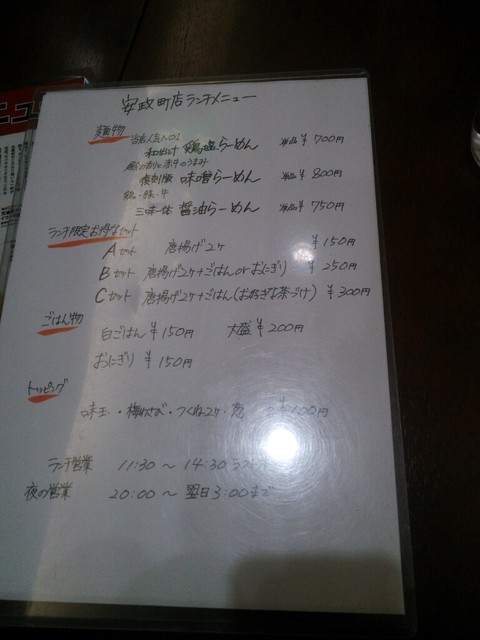 安政町店ランチメニュー
麺物
当店人気NO1
和出汁 鶏塩らーめん 単品¥700円
復刻版 味噌らーめん 単品¥800円
鶏・豚・牛
三味一体 醤油らーめん 単品¥750円
ランチ限定お得なセット
Aセット 唐揚げ2ヶ ¥150円
Bセット 唐揚げ2ヶ+ごはんorおにぎり ¥250円
Cセット 唐揚げ2ヶ+ごはん(お好きな茶づけ) ¥300円
ごはん物
白ごはん ¥150円 大盛 ¥200円
おにぎり ¥150円
トッピング
味玉・梅わさび・つくね2ヶ・ ¥100円
ランチ営業 11:30～14:30
夜の営業 20:00～翌日3:00まで